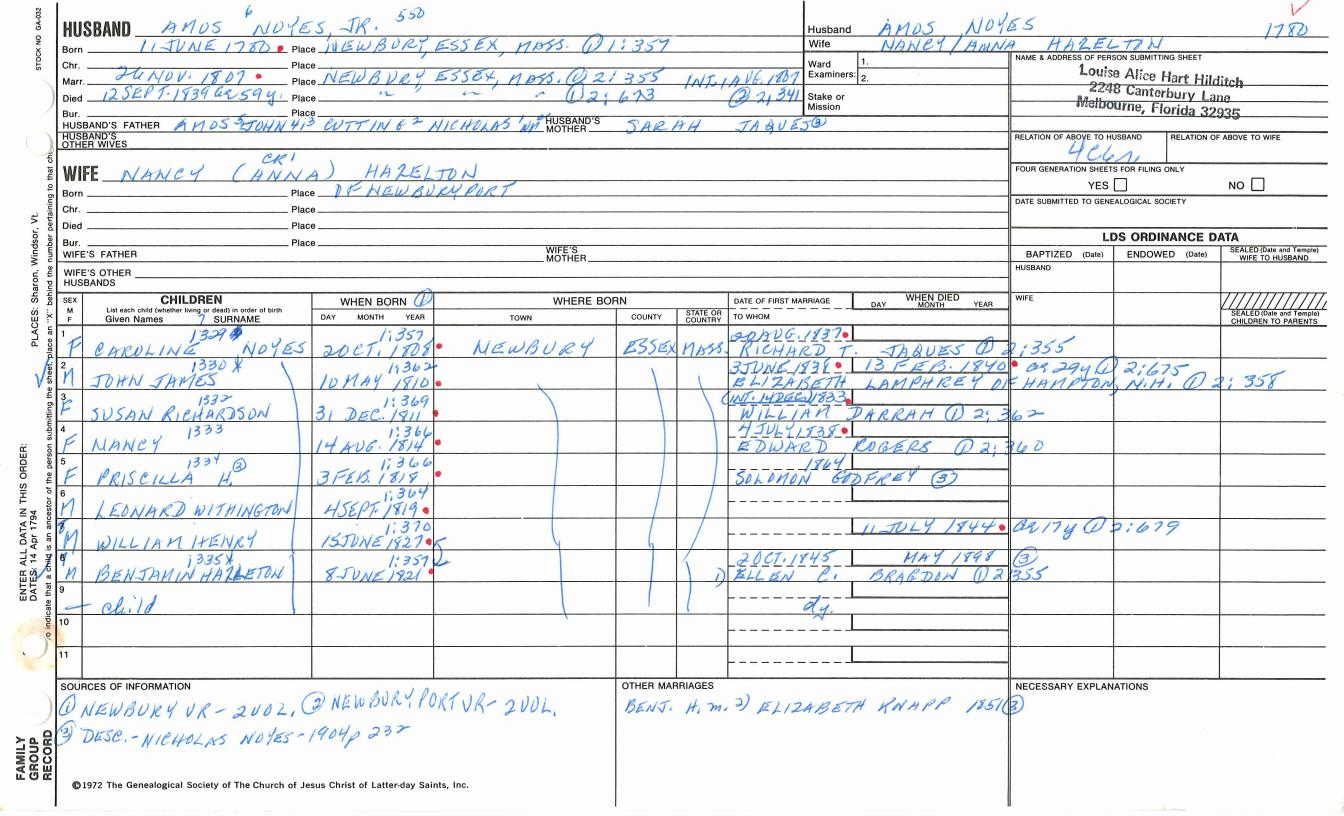 STOCK NO. GA-032
HUSBAND AMOS 6 NOYES, JR. 550
Born 11 JUNE 1780 Place NEWBURY, ESSEX, MASS. ① 1:357
Chr. Place
Marr. 26 NOV. 1807 Place NEWBURY, ESSEX, MASS. ① 2:355 INT. 1 AUG. 1807
Died 12 SEPT. 1839 ae 59y. Place " " " ① 2:673 ② 2:341
Bur. Place
HUSBAND'S FATHER AMOS 5 JOHN 4,3 CUTTING 2 NICHOLAS 1 HUSBAND'S MOTHER SARAH JAQUES ③
HUSBAND'S OTHER WIVES
Husband AMOS NOYES 1780
Wife NANCY/ANNA HAZELTON
Ward Examiners: 1.
2.
Stake or Mission
NAME & ADDRESS OF PERSON SUBMITTING SHEET
Louise Alice Hart Hilditch
2248 Canterbury Lane
Melbourne, Florida 32935
RELATION OF ABOVE TO HUSBAND RELATION OF ABOVE TO WIFE
FOUR GENERATION SHEETS FOR FILING ONLY
YES NO
DATE SUBMITTED TO GENEALOGICAL SOCIETY
CR1
WIFE NANCY (ANNA) HAZELTON
Born Place OF NEWBURYPORT
Chr. Place
Died Place
Bur. Place
WIFE'S FATHER WIFE'S MOTHER
WIFE'S OTHER HUSBANDS
LDS ORDINANCE DATA
BAPTIZED (Date) ENDOWED (Date) SEALED (Date and Temple) WIFE TO HUSBAND
HUSBAND
WIFE
SEALED (Date and Temple) CHILDREN TO PARENTS
SEX M F CHILDREN WHEN BORN ① WHERE BORN DATE OF FIRST MARRIAGE WHEN DIED
List each child (whether living or dead) in order of birth
Given Names 7 SURNAME DAY MONTH YEAR TOWN COUNTY STATE OR COUNTRY TO WHOM DAY MONTH YEAR
1 1329 1:357 20 AUG. 1837
F CAROLINE NOYES 2 OCT. 1808 NEWBURY ESSEX MASS. RICHARD T. JAQUES ① 2:355
2 1330 X 1:362 3 JUNE 1838 13 FEB. 1840 ae 29y ① 2:675
M JOHN JAMES 10 MAY 1810 ELIZABETH LAMPHREY OF HAMPTON, N.H. ① 2:358
3 1332 1:369 (INT. 14 DEC. 1833
F SUSAN RICHARDSON 31 DEC. 1811 WILLIAM DARRAH ① 2:362
4 1333 1:366 4 JULY 1838
F NANCY 14 AUG. 1814 EDWARD ROGERS ① 2:360
5 1334 ③ 1:366 1864
F PRISCILLA H. 3 FEB. 1818 SOLOMON GODFREY ③
6 1:364
M LEONARD WITHINGTON 4 SEPT. 1819
8 1:370 11 JULY 1844 ae 17y ① 2:679
M WILLIAM HENRY 15 JUNE 1827
1335 X 1:357 2 OCT. 1845 MAY 1898 ③
M BENJAMIN HAZLETON 8 JUNE 1821 1) ELLEN C. BRAGDON ① 2:355
9
— child dy.
10
11
SOURCES OF INFORMATION
① NEWBURY VR- 2 VOL. ② NEWBURYPORT VR- 2 VOL.
③ DESC.- NICHOLAS NOYES - 1904 p 232
OTHER MARRIAGES
BENJ. H. m. 2) ELIZABETH KNAPP 1851 ③
NECESSARY EXPLANATIONS
©1972 The Genealogical Society of The Church of Jesus Christ of Latter-day Saints, Inc.
FAMILY GROUP RECORD
ENTER ALL DATA IN THIS ORDER:
DATES: 14 Apr 1794
PLACES: Sharon, Windsor, Vt.
to indicate that a child is an ancestor of the person submitting the sheet, place an "X" behind the number pertaining to that